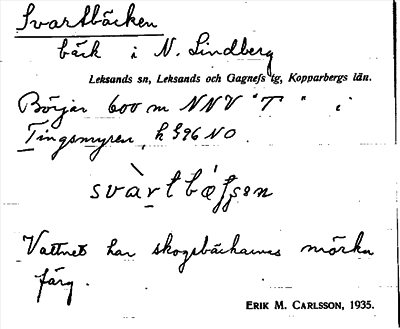 Svartbäcken
bäck i N. Lindberg
Leksands sn, Leksands och Gagnefs tg, Kopparbergs län.
Börjar 600 m NNV "T" i
Tingsmyren, h 396 NO.
svàrtbǽ
Vattnet har skogsbäckarnes mörka
färg.
ERIK M. CARLSSON, 1935.